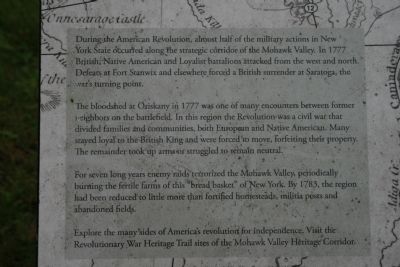 Onnesarage Castle
12
During the American Revolution, almost half of the military actions in New
York State occurred along the strategic corridor of the Mohawk Valley. In 1777
British, Native American and Loyalist battalions attacked from the west and north.
Defeats at Fort Stanwix and elsewhere forced a British surrender at Saratoga, the
war's turning point.
The bloodshed at Oriskany in 1777 was one of many encounters between former
neighbors on the battlefield. In this region the Revolution was a civil war that
divided families and communities, both European and Native American. Many
stayed loyal to the British King and were forced to move, forfeiting their property.
The remainder took up arms or struggled to remain neutral.
For seven long years enemy raids terrorized the Mohawk Valley, periodically
burning the fertile farms of this "bread basket" of New York. By 1783, the region
had been reduced to little more than fortified homesteads, militia posts and
abandoned fields.
Explore the many sides of America's revolution for independence. Visit the
Revolutionary War Heritage Trail sites of the Mohawk Valley Heritage Corridor.
of the